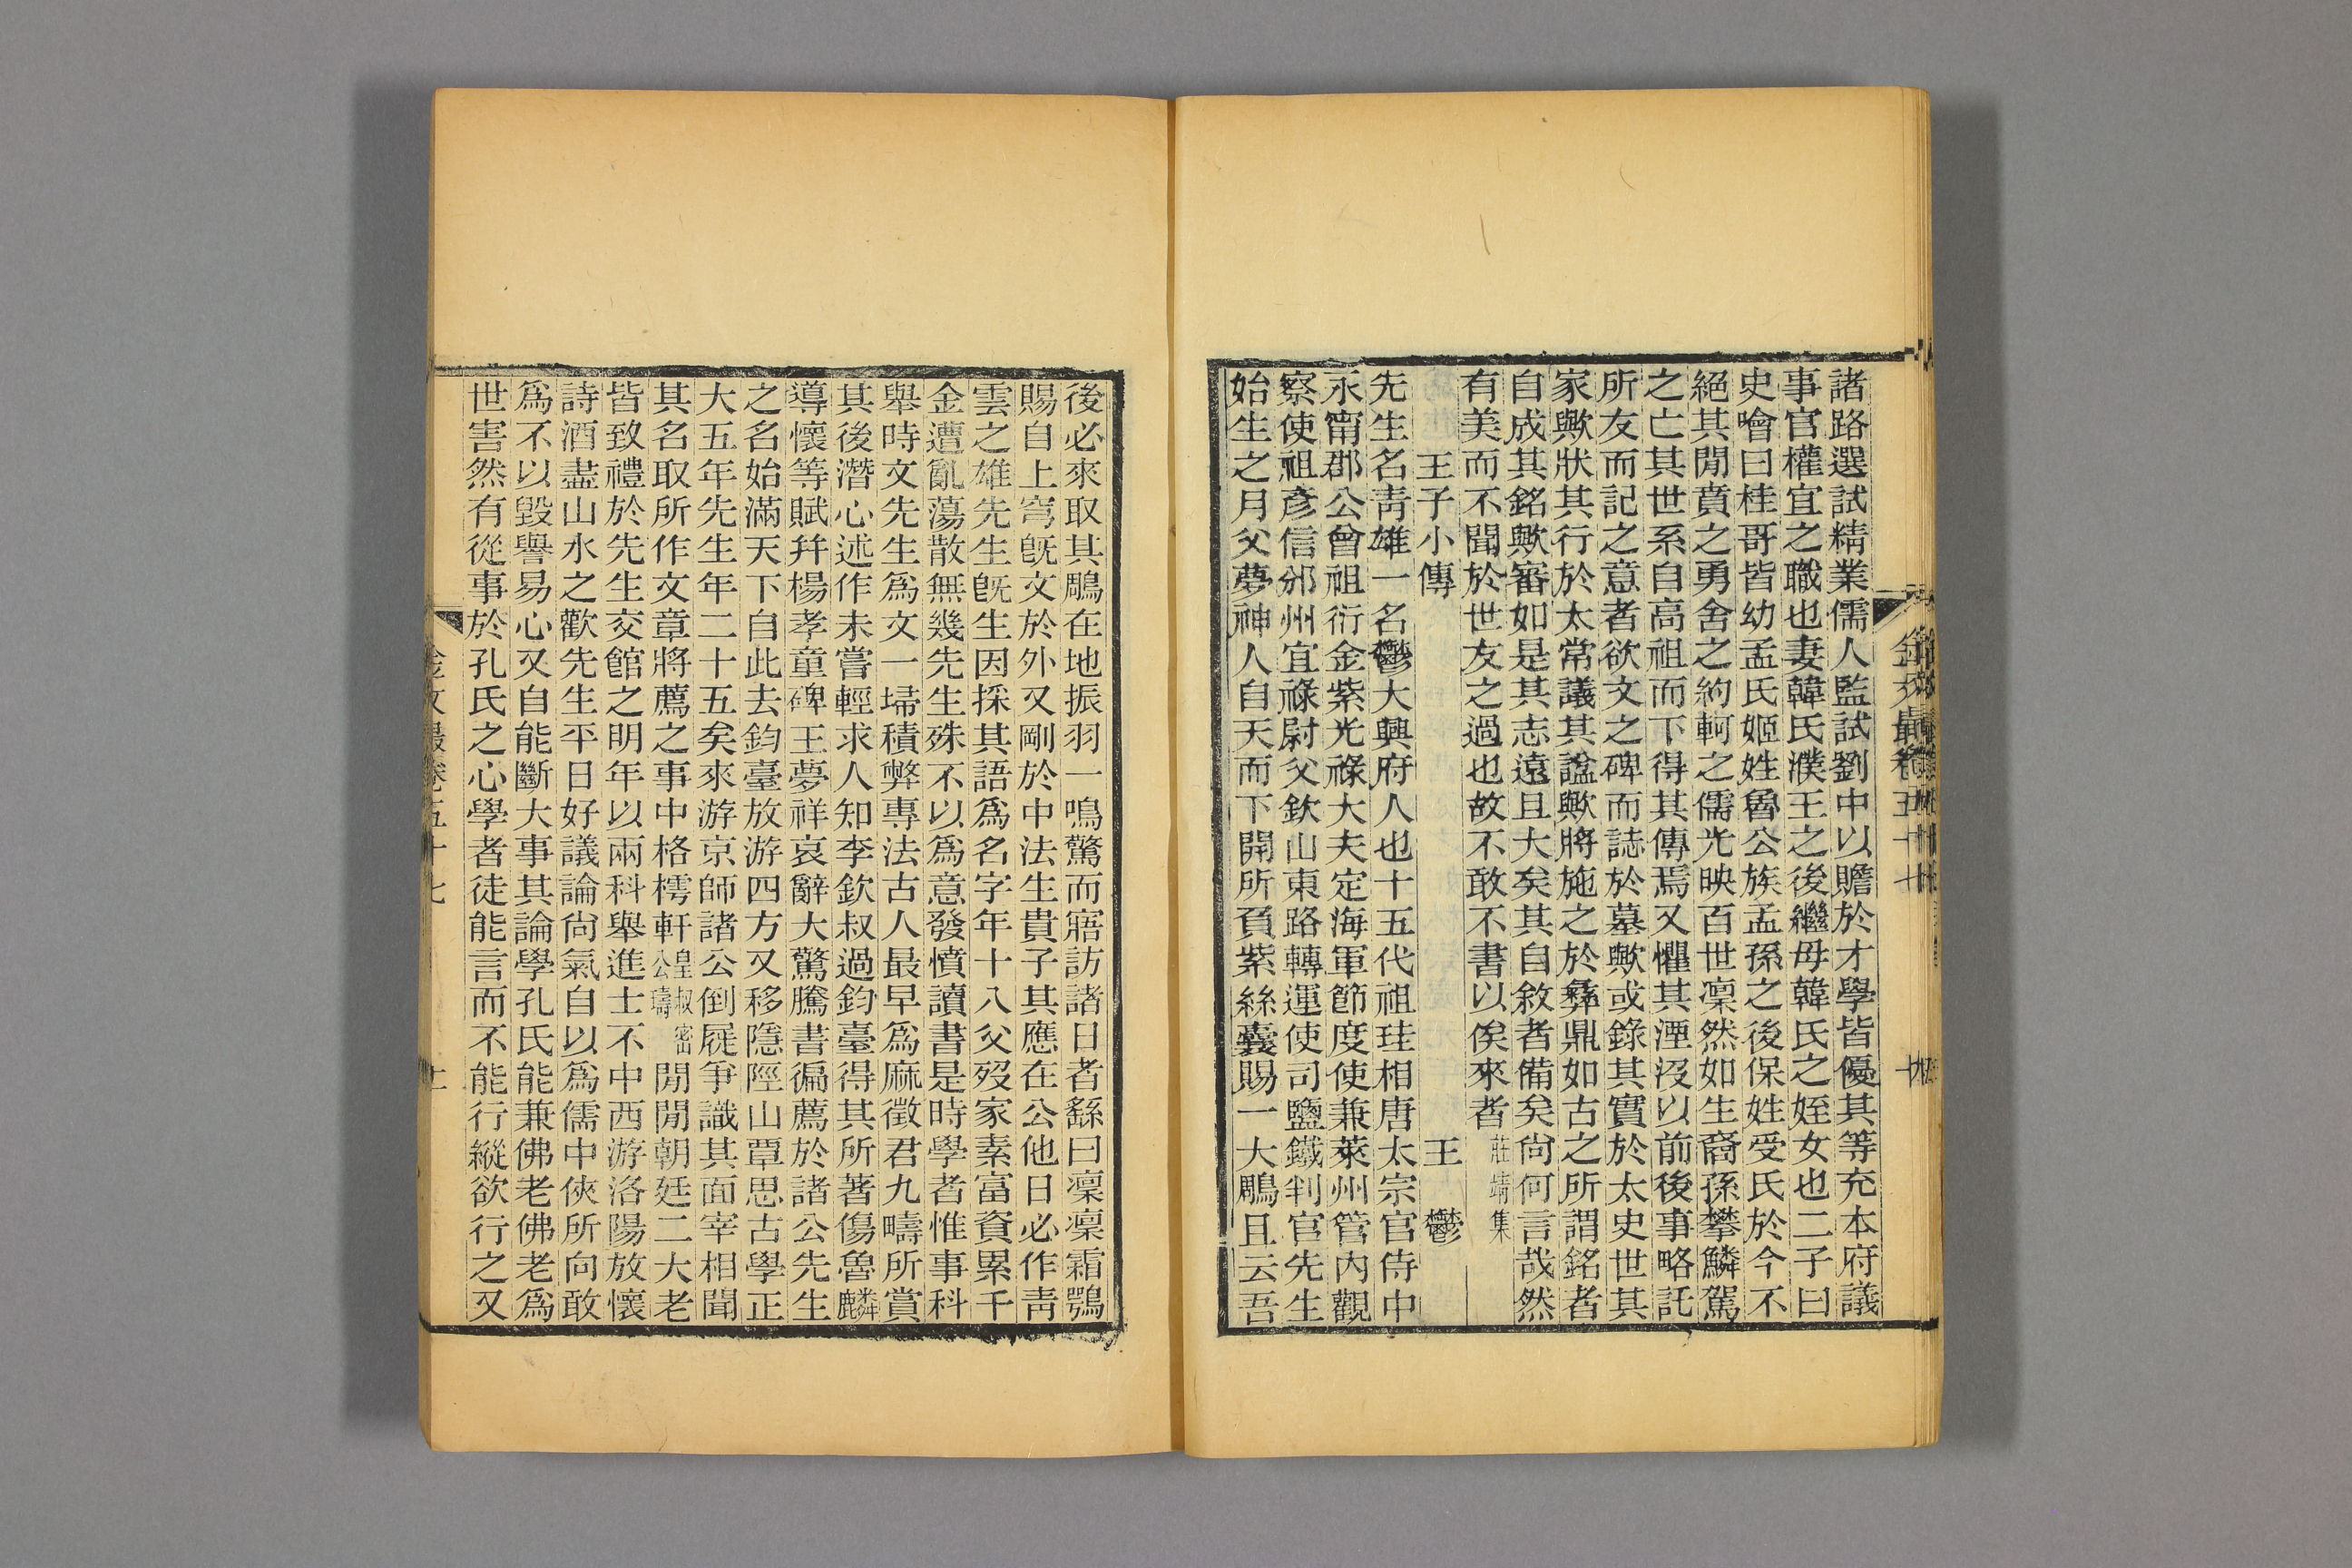 諸路選試精業儒人監試劉中以贍於才學皆優其等充本府議
事官權宜之職也妻韓氏濮王之後繼毋韓氏之姪女也二子曰
史噲曰桂哥皆幼孟氏姬姓魯公族孟孫之後保姓受氏於今不
絕其閒賁之勇舍之約軻之儒光映百世凜然如生裔孫攀鱗駕
之亡其世系自高祖而下得其傳焉又懼其湮沒以前後事略託
所友而記之意者欲文之碑而誌於墓歟或錄其實於太史世其
家歟狀其行於太常議其諡歟將施之於彝鼎如古之所謂銘者
自成其銘歟審如是其志遠且大矣其自敘者備矣尙何言哉然
有美而不聞於世友之過也故不敢不書以俟來者 莊靖集
王子小傳 王鬱
先生名靑雄一名鬱大興府人也十五代祖珪相唐太宗官侍中
永甯郡公曾祖衍金紫光祿大夫定海軍節度使兼萊州管內觀
察使祖彥信邠州宜祿尉父欽山東路轉運使司鹽鐵判官先生
始生之月父夢神人自天而下開所負紫絲囊賜一大鵰且云吾
後必來取其鵰在地振羽一鳴驚而寤訪諸日者繇曰凜凜霜鶚
賜自上穹旣文於外又剛於中法生貴子其應在公他日必作靑
雲之雄先生旣生因採其語爲名字年十八父歿家素富資累千
金遭亂蕩散無幾先生殊不以爲意發憤讀書是時學者惟事科
舉時文先生爲文一埽積弊專法古人最早爲麻徵君九疇所賞
其後潛心述作未嘗輕求人知李欽叔過鈞臺得其所著傷魯麟
導懷等賦幷楊孝童碑王夢祥哀辭大驚騰書徧薦於諸公先生
之名始滿天下自此去鈞臺放游四方又移隱陘山覃思古學正
大五年先生年二十五矣來游京師諸公倒屣爭識其面宰相聞
其名取所作文章將薦之事中格樗軒皇叔密公璹閒閒朝廷二大老
皆致禮於先生交館之明年以兩科舉進士不中西游洛陽放懷
詩酒盡山水之歡先生平日好議論尙氣自以爲儒中俠所向敢
爲不以毀譽易心又自能斷大事其論學孔氏能兼佛老佛老爲
世害然有從事於孔氏之心學者徒能言而不能行縱欲行之又
金文最卷五十七